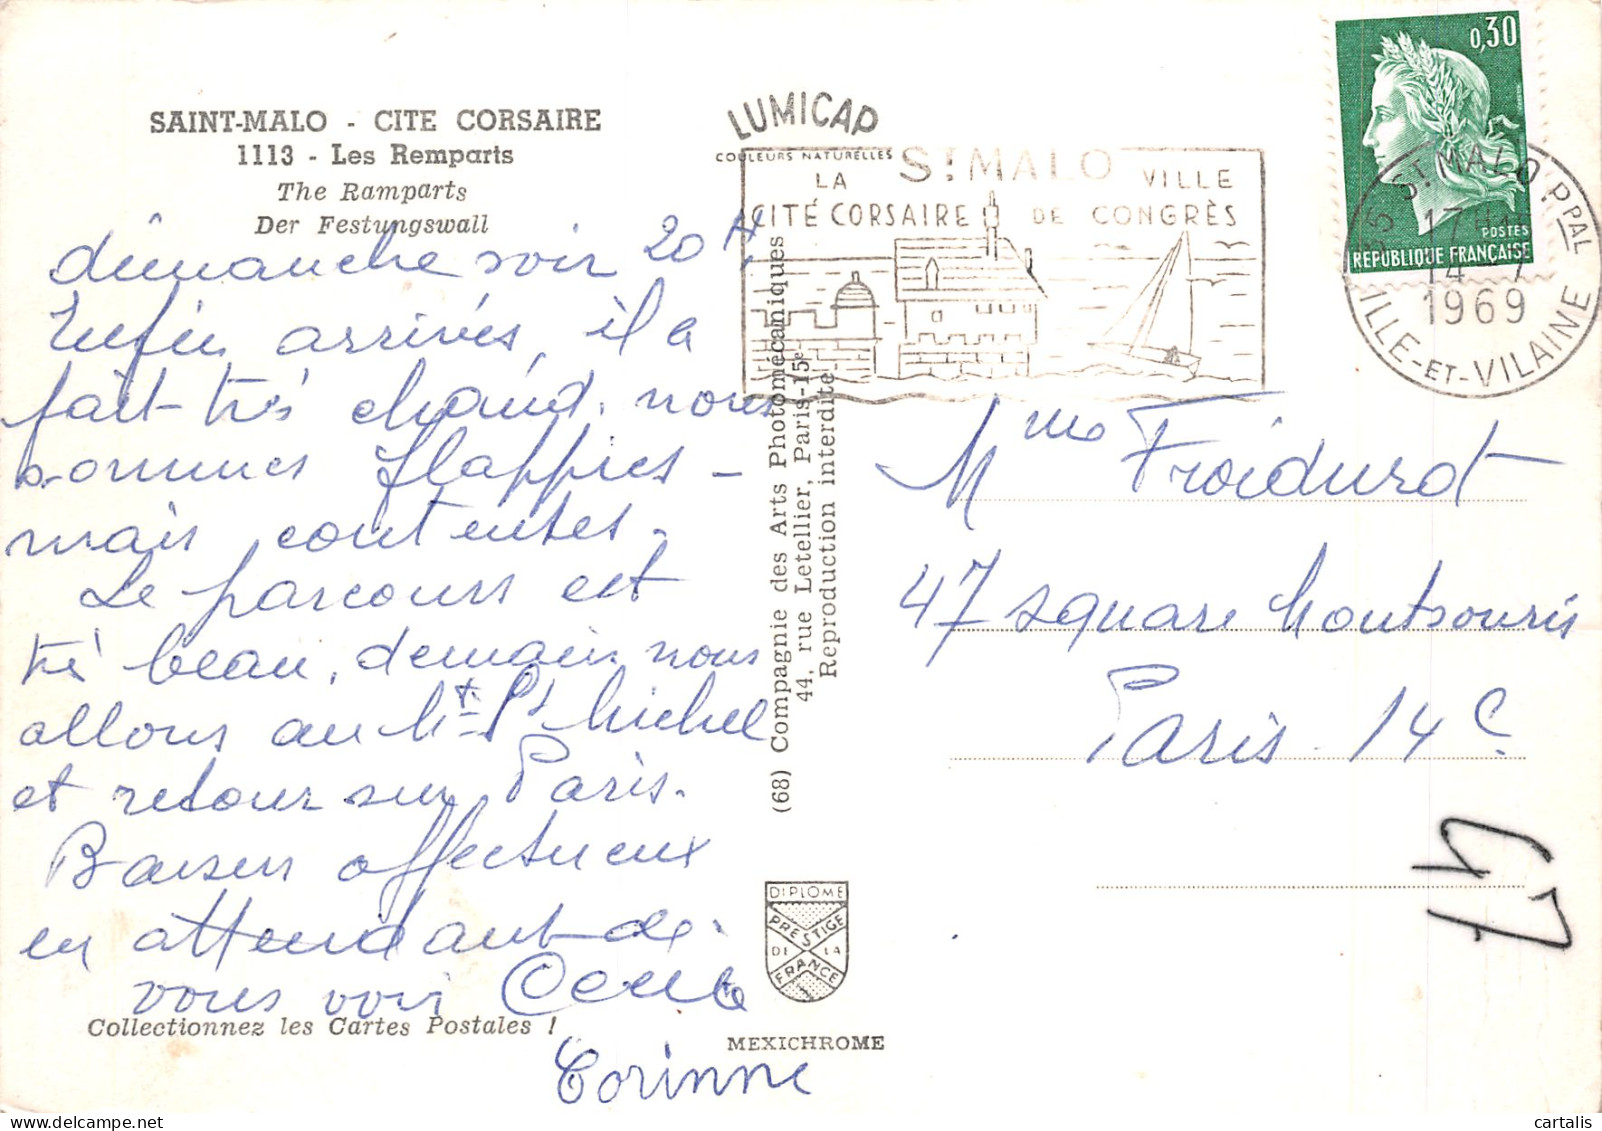 SAINT-MALO - CITE CORSAIRE
1113 - Les Remparts
The Ramparts
Der Festungswall
dimanche soir 20 H
Enfin arrivés, il a
fait très chaud. nous
sommes flappies -
mais contentes.
Le parcours est
trè beau, demain nous
allons au Mt St Michel
et retour sur Paris.
Baisers affectueux
en attendant de
vous voir
Corinne
Collectionnez les Cartes Postales !
LUMICAP
COULEURS NATURELLES
(68) Compagnie des Arts Photomécaniques
44, rue Letellier, Paris-15e
Reproduction interdite
DIPLOME
PRESTIGE
DE LA
FRANCE
MEXICHROME
ST MALO
LA VILLE
CITÉ CORSAIRE DE CONGRÈS
0,30
POSTES
REPUBLIQUE FRANÇAISE
35 ST MALO PPAL
17 H
14 - 7
1969
ILLE-ET-VILAINE
Mme Froidurot
47 square Montsouris
Paris 14e
47
cartalis